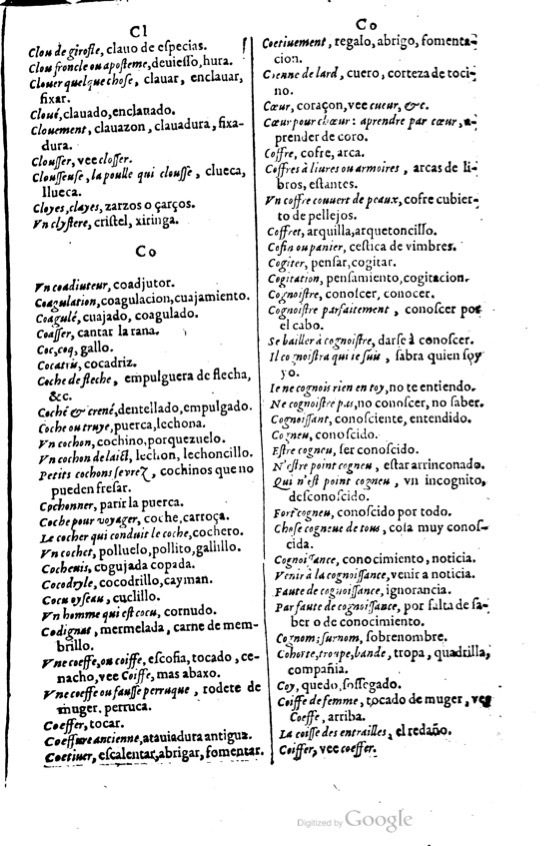 Cl
Clou de girofle, clauo de especias.
Clou froncle ou aposteme, deuiesso, hura.
Clouer quelque chose, clauar, enclauar,
fixar.
Cloué, clauado, enclauado.
Clouement, clauazon, clauadura, fixa-
dura.
Clousser, vee closser.
Cloussense, la poulle qui clousse, clueca,
llueca.
Cloyes, clayes, zarzos o çarços.
Vn clystere, cristel, xiringa.
Co
Vn coadiuteur, coadjutor.
Coagulation, coagulacion, cuajamiento.
Coagulé, cuajado, coagulado.
Coasser, cantar la rana.
Coc, coq, gallo.
Cocatris, cocadriz.
Coche de fleche, empulguera de flecha,
&c.
Coché & crené, dentellado, empulgado.
Coche ou truye, puerca, lechona.
Vn cochon, cochino, porquezuelo.
Vn cochon de laict, lechon, lechoncillo.
Petits cochons sevrez, cochinos que no
pueden fresar.
Cochonner, parir la puerca.
Coche pour voyager, coche, carroça.
Le cocher qui conduit le coche, cochero.
Vn cochet, polluelo, pollito, gallillo.
Cocheuis, cogujada copada.
Cocodryle, cocodrillo, cayman.
Cocu oyseau, cuclillo.
Vn homme qui est cocu, cornudo.
Codignat, mermelada, carne de mem-
brillo.
Vne coeffe, ou coiffe, escofia, tocado, ce-
nacho, vee Coiffe, mas abaxo.
Vne coeffe ou fausse perruque, rodete de
muger, perruca.
Coeffer, tocar.
Coeffure ancienne, atauiadura antigua.
Coetiuer, escalentar, abrigar, fomentar.
Co
Coetiuement, regalo, abrigo, fomenta-
cion.
Cœnne de lard, cuero, corteza de toci-
no.
Cœur, coraçon, vee cueur, &c.
Cœur pour chœur: aprendre par cœur, a-
prender de coro.
Coffre, cofre, arca.
Coffres à liures ou armoires, arcas de li-
bros, estantes.
Vn coffre couuert de peaux, cofre cubier-
to de pellejos.
Coffret, arquilla, arquetoncillo.
Cofin ou panier, cestica de vimbres.
Cogiter, pensar, cogitar.
Cogitation, pensamiento, cogitacion.
Cognoistre, conoscer, conocer.
Cognoistre parfaitement, conoscer por
el cabo.
Se bailler à cognoistre, darse à conoscer.
Il cognoistra qui ie suis, sabra quien soy
yo.
Ie ne cognois rien en toy, no te entiendo.
Ne cognoistre pas, no conoscer, no saber.
Cognoissant, conosciente, entendido.
Cogneu, conoscido.
Estre cogneu, ser conoscido.
N'estre point cogneu, estar arrinconado.
Qui n'est point cogneu, vn incognito,
desconoscido.
Fort cogneu, conoscido por todo.
Chose cogneue de tous, cosa muy conos-
cida.
Cognoissance, conocimiento, noticia.
Venir à la cognoissance, venir a noticia.
Faute de cognoissance, ignorancia.
Par faute de cognoissance, por falta de sa-
ber o de conocimiento.
Cognom; surnom, sobrenombre.
Cohorte, troupe, bande, tropa, quadrilla,
compañia.
Coy, quedo, sossegado.
Coiffe de femme, tocado de muger, vee
Coeffe, arriba.
La coiffe des entrailles, el redaño.
Coiffer, vee coeffer.
Digitized by Google